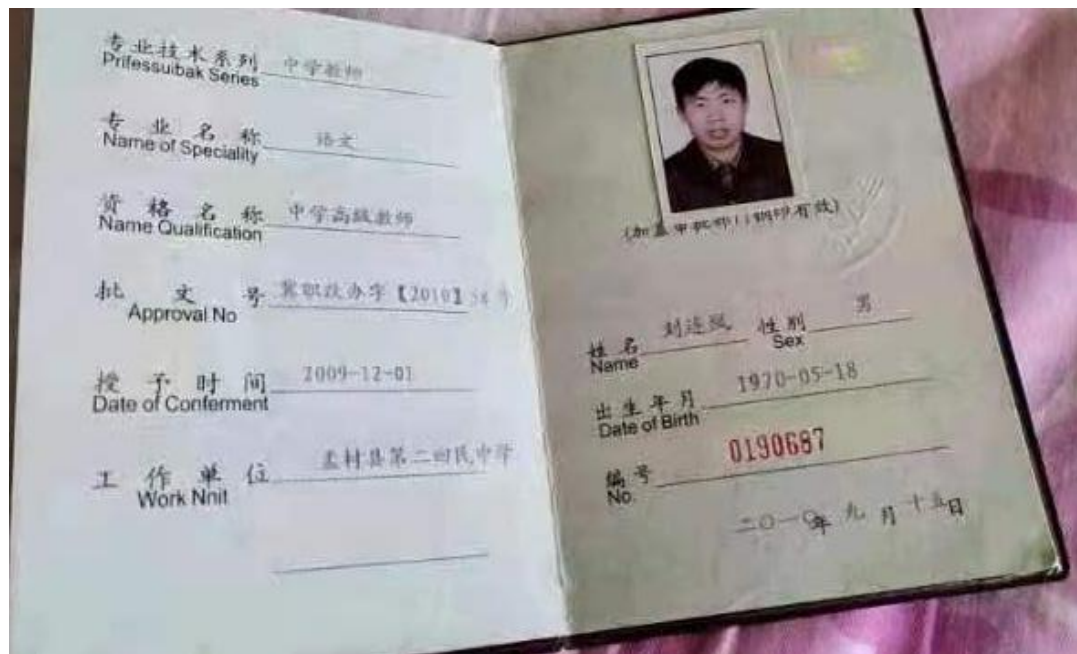 专业技术系列 中学教师
Prifessuibak Series
专业名称 语文
Name of Speciality
资格名称 中学高级教师
Name Qualification
批文号 冀职改办字【2010】58号
Approval No
授予时间 2009-12-01
Date of Conferment
工作单位 孟村县第二回民中学
Work Nnit
(加盖审批部门钢印有效)
姓名 刘连 性别 男
Name Sex
出生年月 1970-05-18
Date of Birth
编号 0190687
No.
二〇一〇年九月十五日